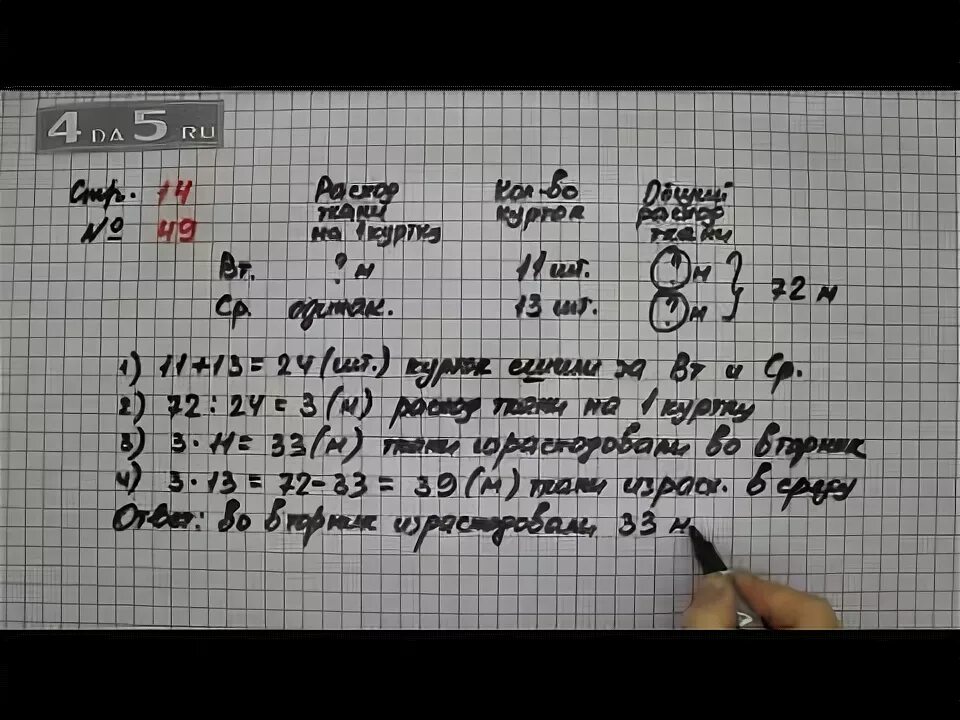 4 DA 5 RU
Стр. 14 Расход Кол-во Общий
№ 49 ткани курток расход
на 1 куртку ткани
Вт. ? м 11 шт. ? м
72 м
Ср. одинак. 13 шт. ? м
1) 11+13 = 24 (шт.) курток сшили за Вт и Ср.
2) 72 : 24 = 3 (м) расход ткани на 1 куртку
3) 3 · 11 = 33 (м) ткани израсходовали во вторник
4) 3 · 13 = 72 - 33 = 39 (м) ткани израсх. в среду
Ответ: во вторник израсходовали 33 м